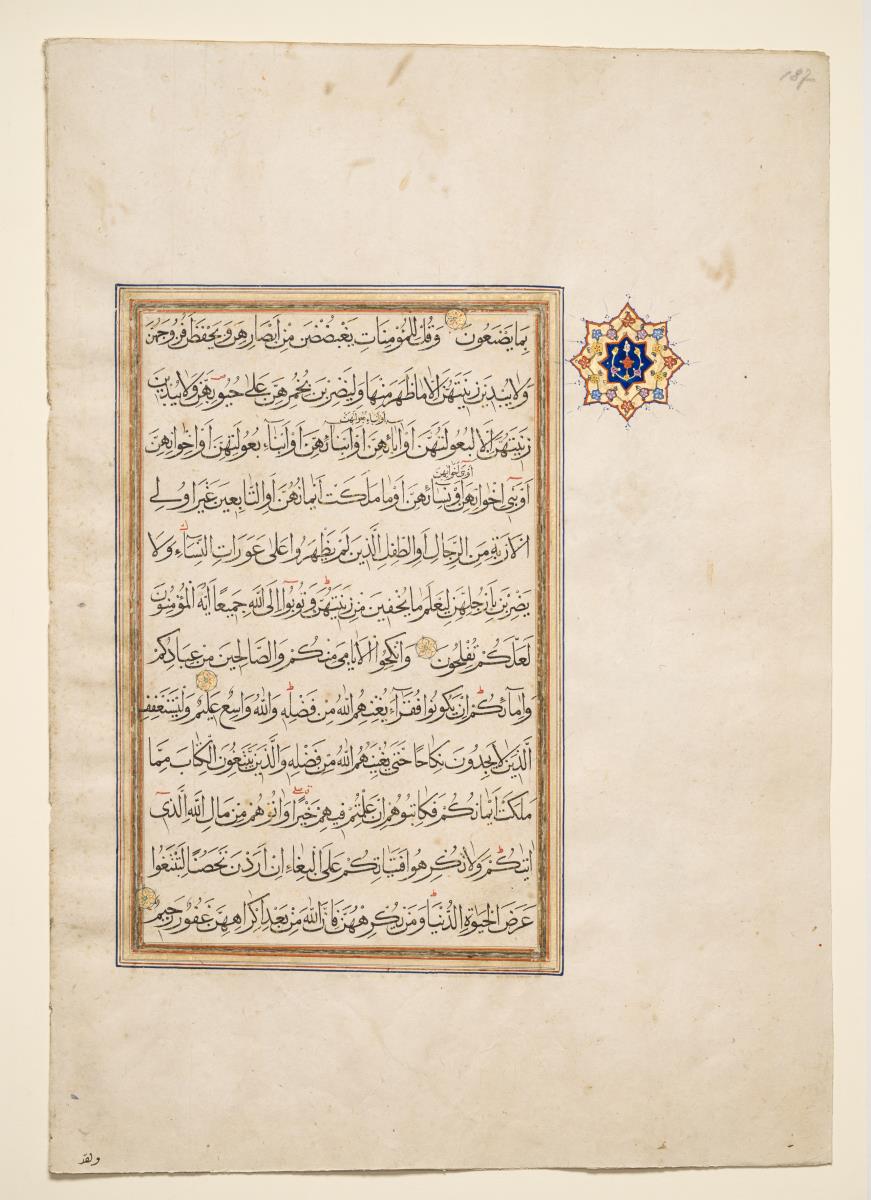 187
بِمَا يَصْنَعُونَ وَقُلْ لِلْمُؤْمِنَاتِ يَغْضُضْنَ مِنْ اَبْصَارِهِنَّ وَيَحْفَظْنَ فُرُوجَهُنَّ
وَلَا يُبْدِينَ زِينَتَهُنَّ اِلَّا مَا ظَهَرَ مِنْهَا وَلْيَضْرِبْنَ بِخُمُرِهِنَّ عَلٰى جُيُوبِهِنَّ وَلَا يُبْدِينَ
اَوْ اٰبَاءِ بُعُولَتِهِنَّ
زِينَتَهُنَّ اِلَّا لِبُعُولَتِهِنَّ اَوْ اٰبَائِهِنَّ اَوْ اَبْنَائِهِنَّ اَوْ اَبْنَاءِ بُعُولَتِهِنَّ اَوْ اِخْوَانِهِنَّ
اَوْ بَنِي اَخَوَاتِهِنَّ
اَوْ بَنِي اِخْوَانِهِنَّ اَوْ نِسَائِهِنَّ اَوْ مَا مَلَكَتْ اَيْمَانُهُنَّ اَوِ التَّابِعِينَ غَيْرِ اُولِي
الْاِرْبَةِ مِنَ الرِّجَالِ اَوِ الطِّفْلِ الَّذِينَ لَمْ يَظْهَرُوا عَلٰى عَوْرَاتِ النِّسَاءِ وَلَا
يَضْرِبْنَ بِاَرْجُلِهِنَّ لِيُعْلَمَ مَا يُخْفِينَ مِنْ زِينَتِهِنَّ وَتُوبُوا اِلَى اللّٰهِ جَمِيعًا اَيُّهَ الْمُؤْمِنُونَ
لَعَلَّكُمْ تُفْلِحُونَ وَاَنْكِحُوا الْاَيَامٰى مِنْكُمْ وَالصَّالِحِينَ مِنْ عِبَادِكُمْ
وَاِمَائِكُمْ اِنْ يَكُونُوا فُقَرَاءَ يُغْنِهِمُ اللّٰهُ مِنْ فَضْلِهِ وَاللّٰهُ وَاسِعٌ عَلِيمٌ وَلْيَسْتَعْفِفِ
الَّذِينَ لَا يَجِدُونَ نِكَاحًا حَتّٰى يُغْنِيَهُمُ اللّٰهُ مِنْ فَضْلِهِ وَالَّذِينَ يَبْتَغُونَ الْكِتَابَ مِمَّا
مَلَكَتْ اَيْمَانُكُمْ فَكَاتِبُوهُمْ اِنْ عَلِمْتُمْ فِيهِمْ خَيْرًا وَاٰتُوهُمْ مِنْ مَالِ اللّٰهِ الَّذِي
اٰتٰيكُمْ وَلَا تُكْرِهُوا فَتَيَاتِكُمْ عَلَى الْبِغَاءِ اِنْ اَرَدْنَ تَحَصُّنًا لِتَبْتَغُوا
عَرَضَ الْحَيٰوةِ الدُّنْيَا وَمَنْ يُكْرِهْهُنَّ فَاِنَّ اللّٰهَ مِنْ بَعْدِ اِكْرَاهِهِنَّ غَفُورٌ رَحِيمٌ
ولقد